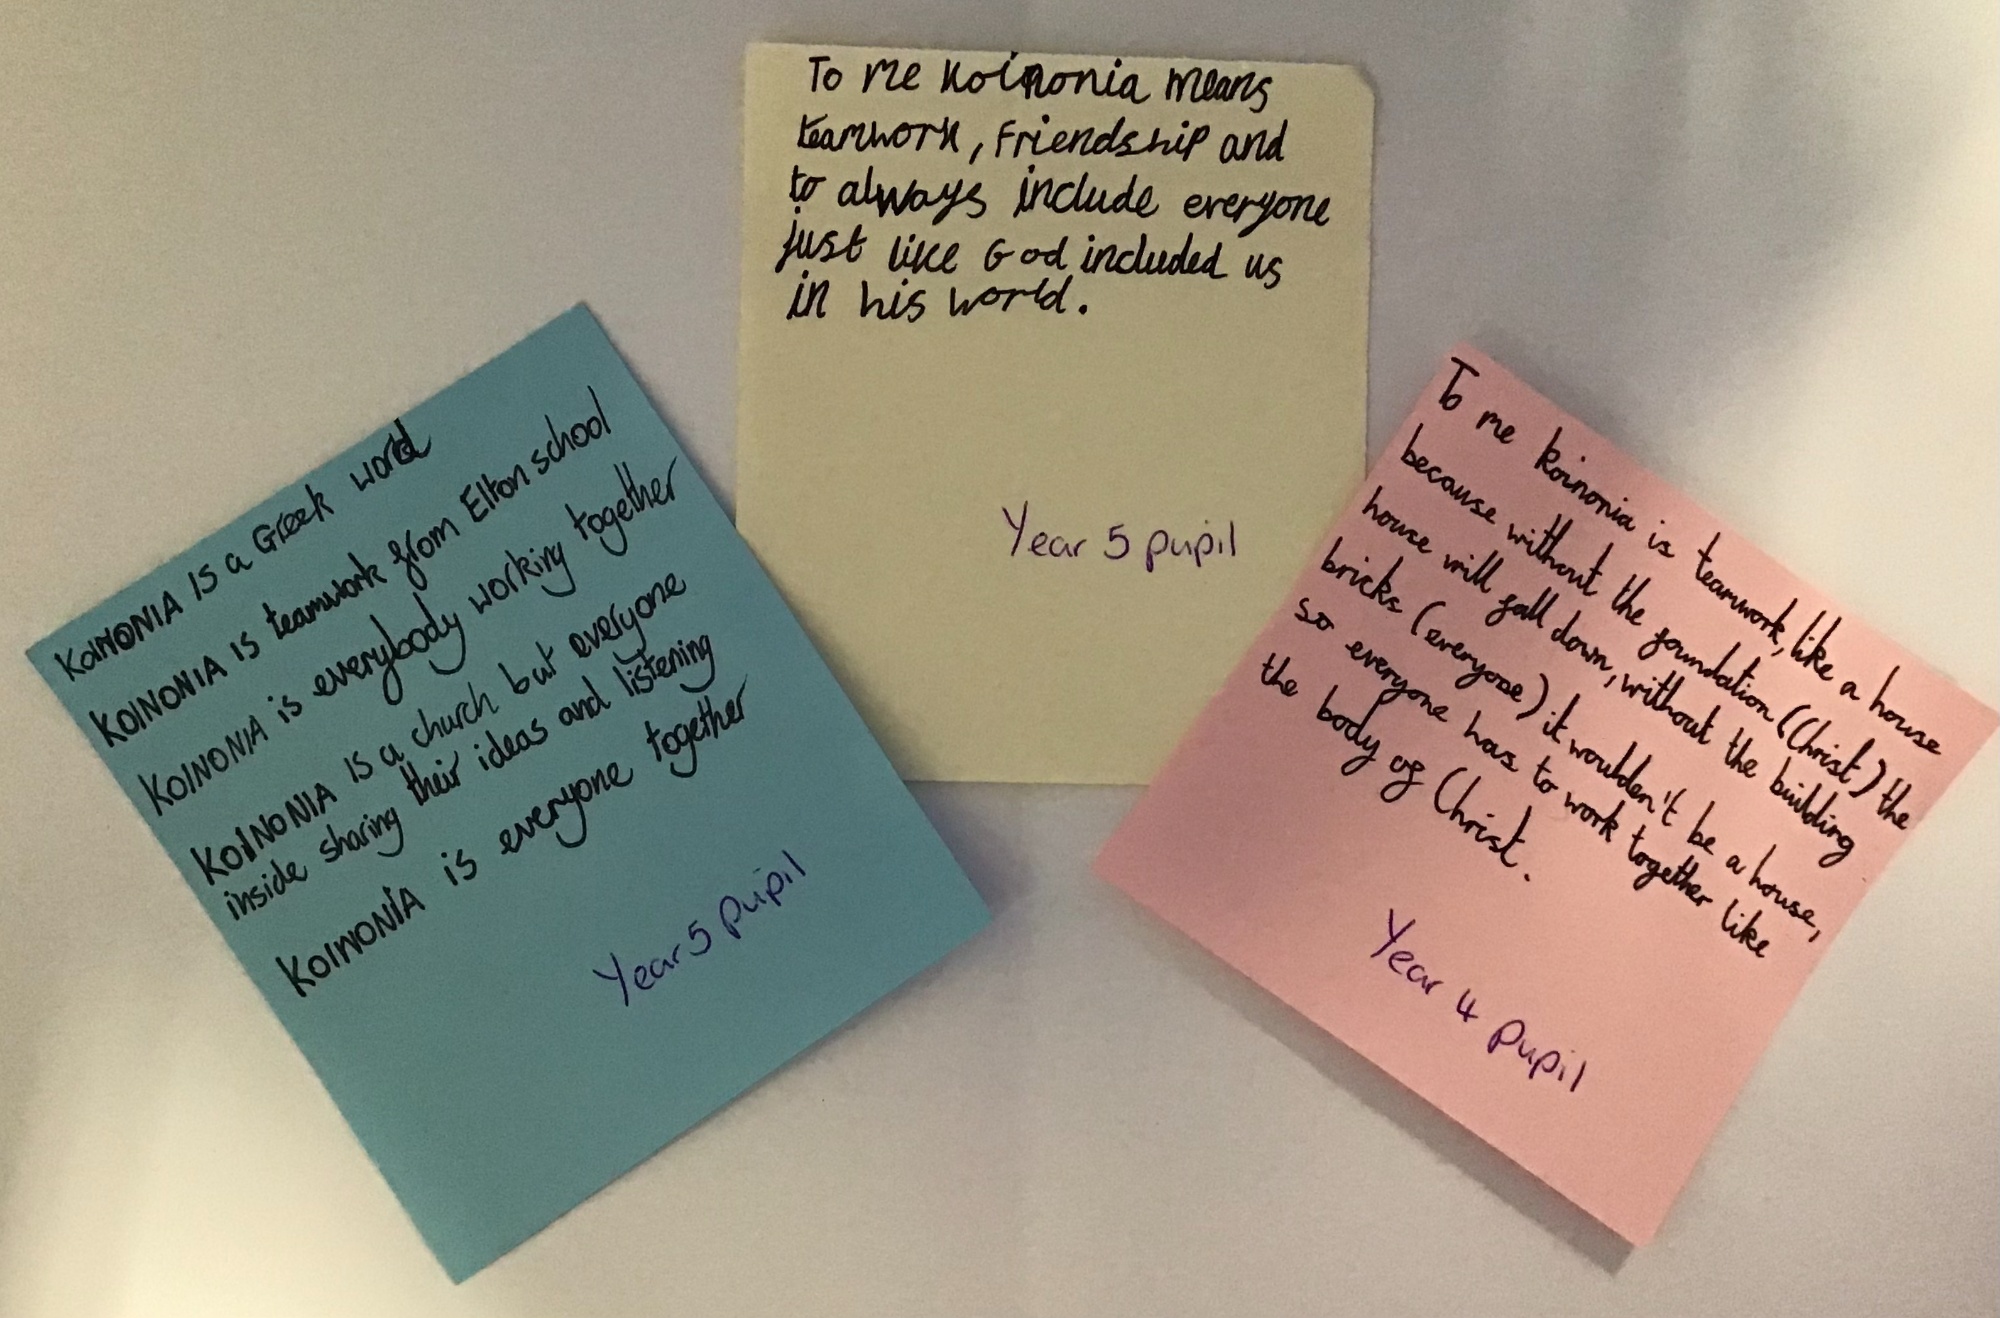 KOINONIA IS a Greek word
KOINONIA IS teamwork from Elton school
KOINONIA is everybody working together
KOINONIA IS a church but everyone
inside sharing their ideas and listening
KOINONIA is everyone together
Year 5 pupil
To me Koinonia means
teamwork, Friendship and
to always include everyone
just like God included us
in his world.
Year 5 pupil
To me koinonia is teamwork, like a house
because without the foundation (Christ) the
house will fall down, without the building
bricks (everyone) it wouldn't be a house,
so everyone has to work together like
the body of Christ.
Year 4 pupil